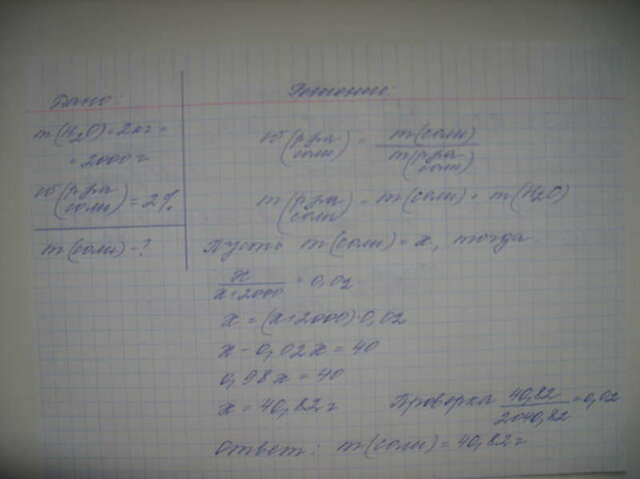 Дано:
m(H₂O) = 2кг =
= 2000 г
ω(р-ра соли) = 2%
m(соли) - ?
Решение:
ω(р-ра соли) = m(соли) / m(р-ра соли)
m(р-ра соли) = m(соли) + m(H₂O)
Пусть m(соли) = x, тогда
x / x+2000 = 0,02
x = (x+2000)·0,02
x - 0,02x = 40
0,98x = 40
x = 40,82 г
Проверка 40,82 / 2040,82 = 0,02
Ответ: m(соли) = 40,82 г